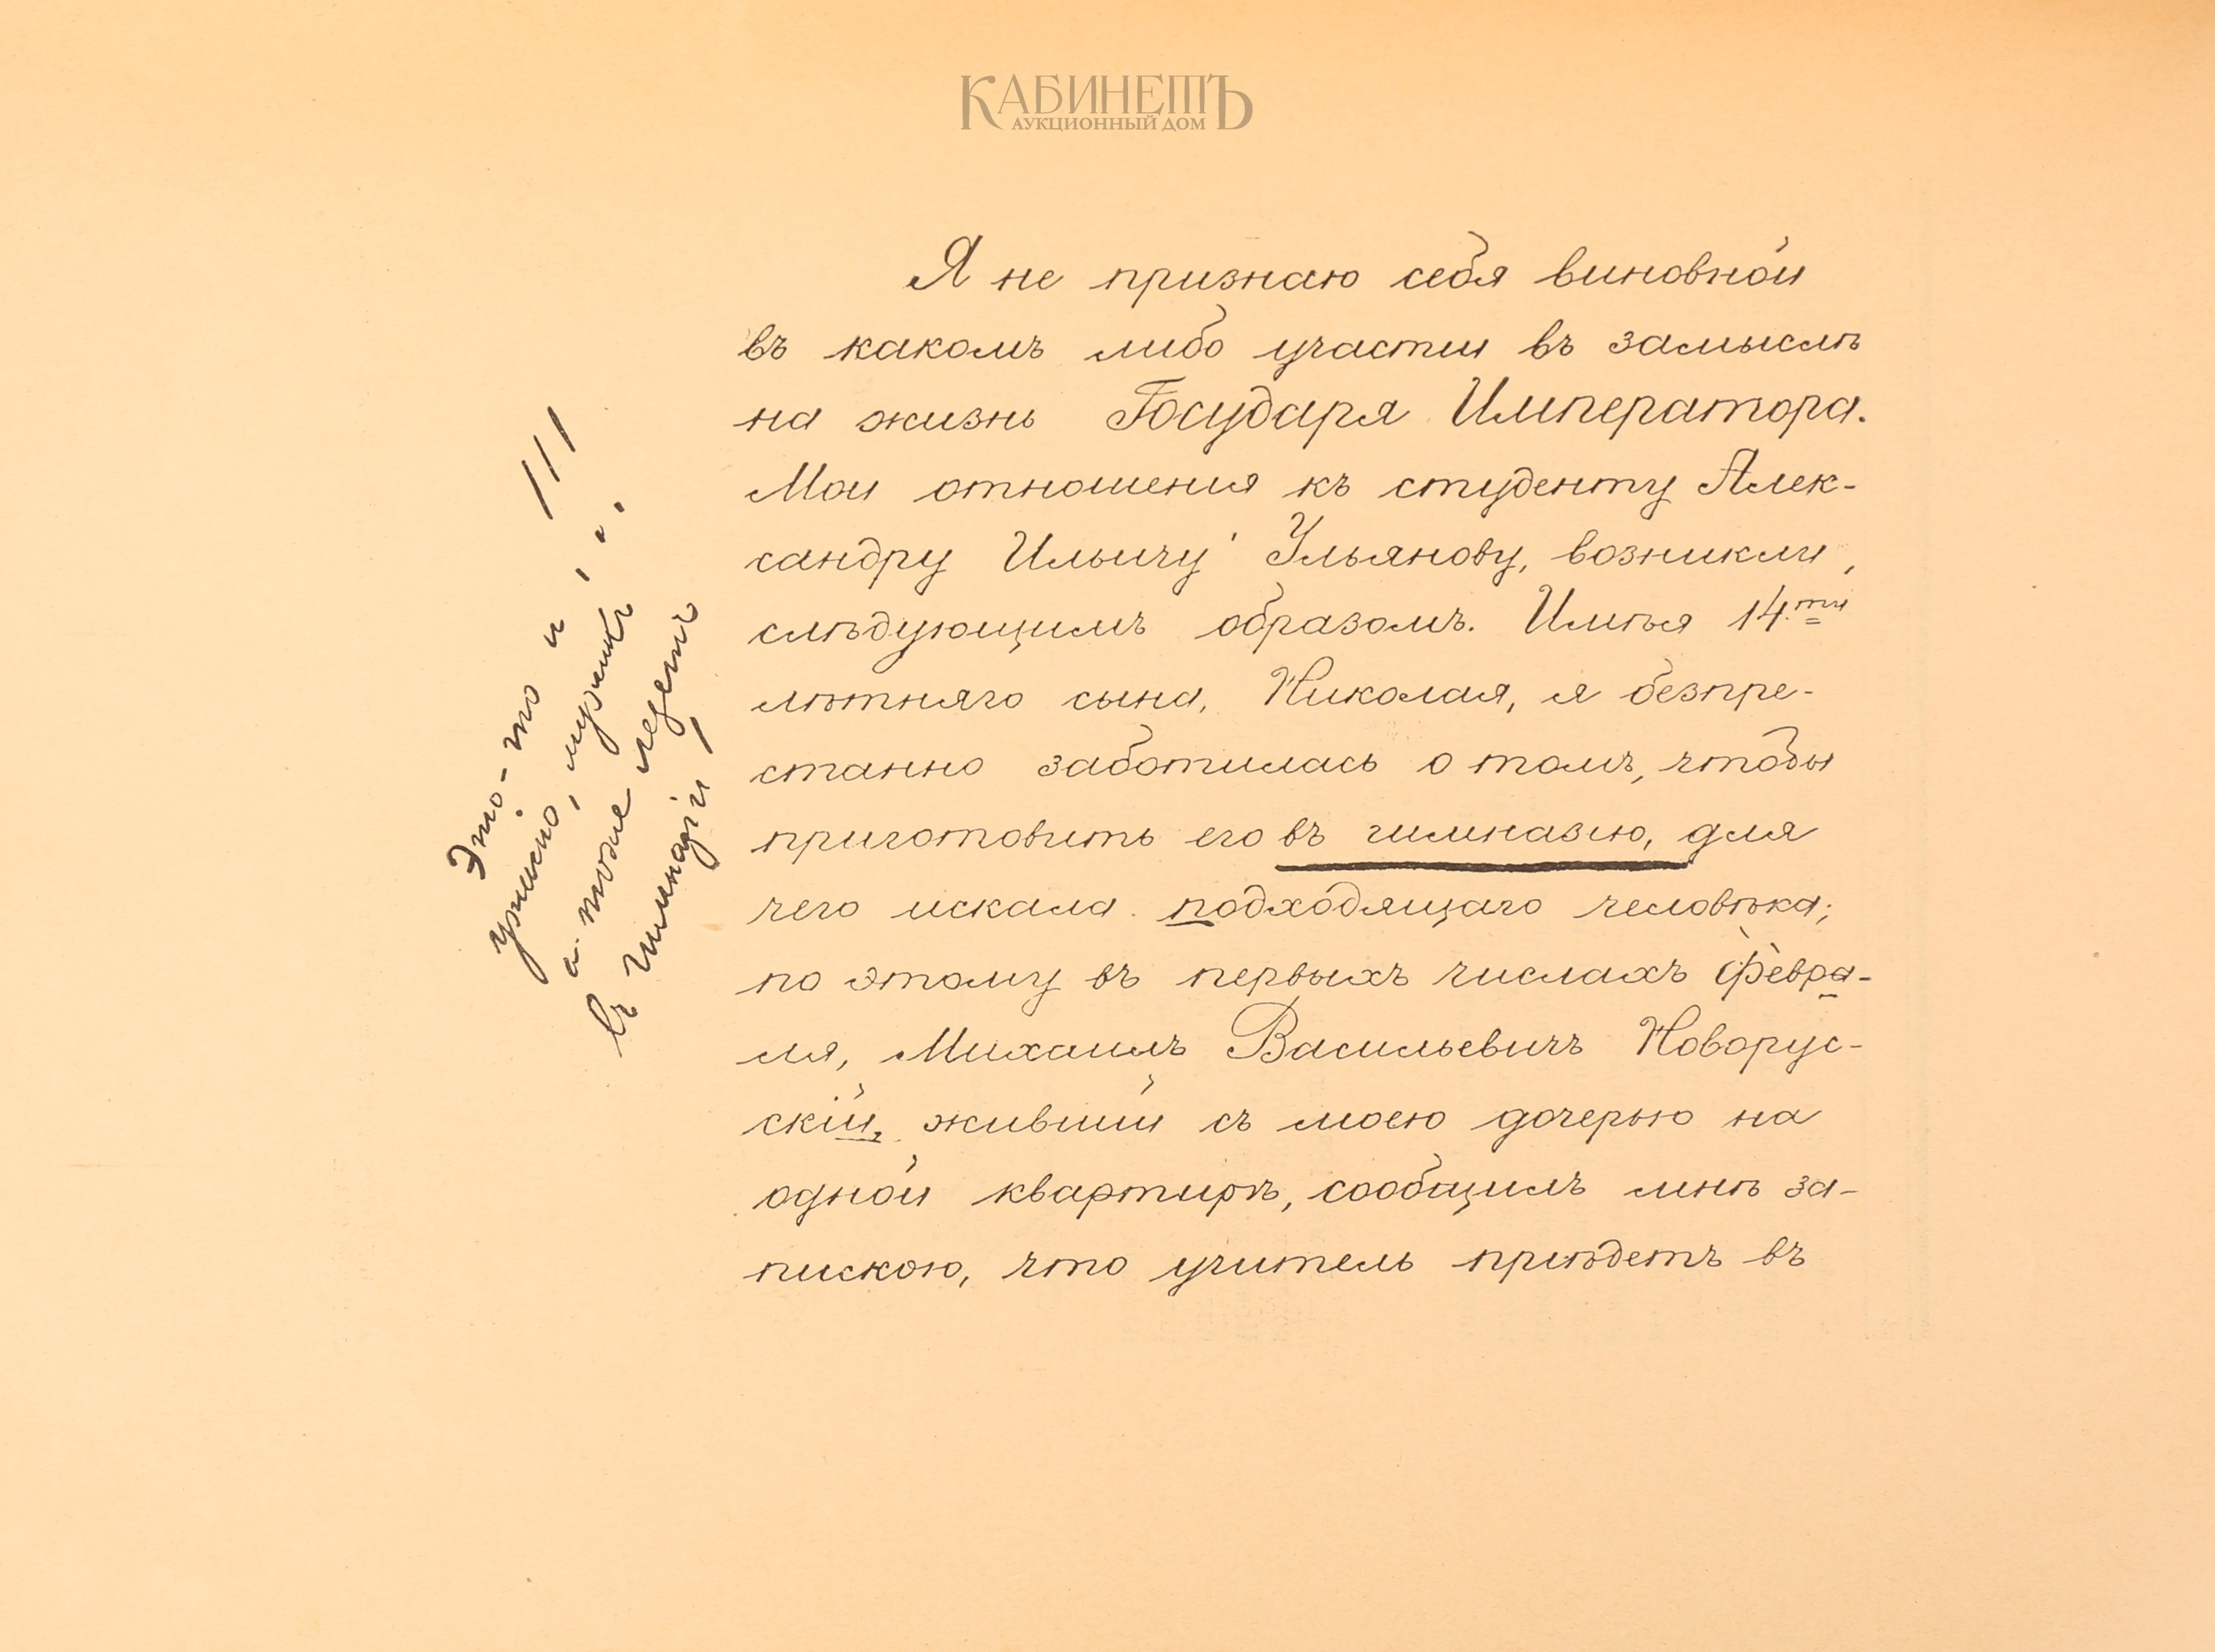 КАБИНЕТЪ
АУКЦИОННЫЙ ДОМ
Я не признаю себя виновной
въ какомъ либо участии въ замыслѣ
на жизнь Государя Императора.
Мои отношения къ студенту Алек-
сандру Ильичу Ульянову, возникли,
слѣдующимъ образомъ. Имѣя 14ти
лѣтняго сына, Николая, я безпре-
станно заботилась о томъ, чтобы
приготовить его въ гимназію, для
чего искала подходящаго человѣка;
по этому въ первыхъ числахъ Февра-
ля, Михаилъ Васильевичъ Новорус-
скій, живший съ моею дочерью на
одной квартирѣ, сообщилъ мнѣ за-
пискою, что учитель приѣдетъ въ
Это-то и
ужасно, мужикъ
а тоже лѣзетъ
въ гимназію!